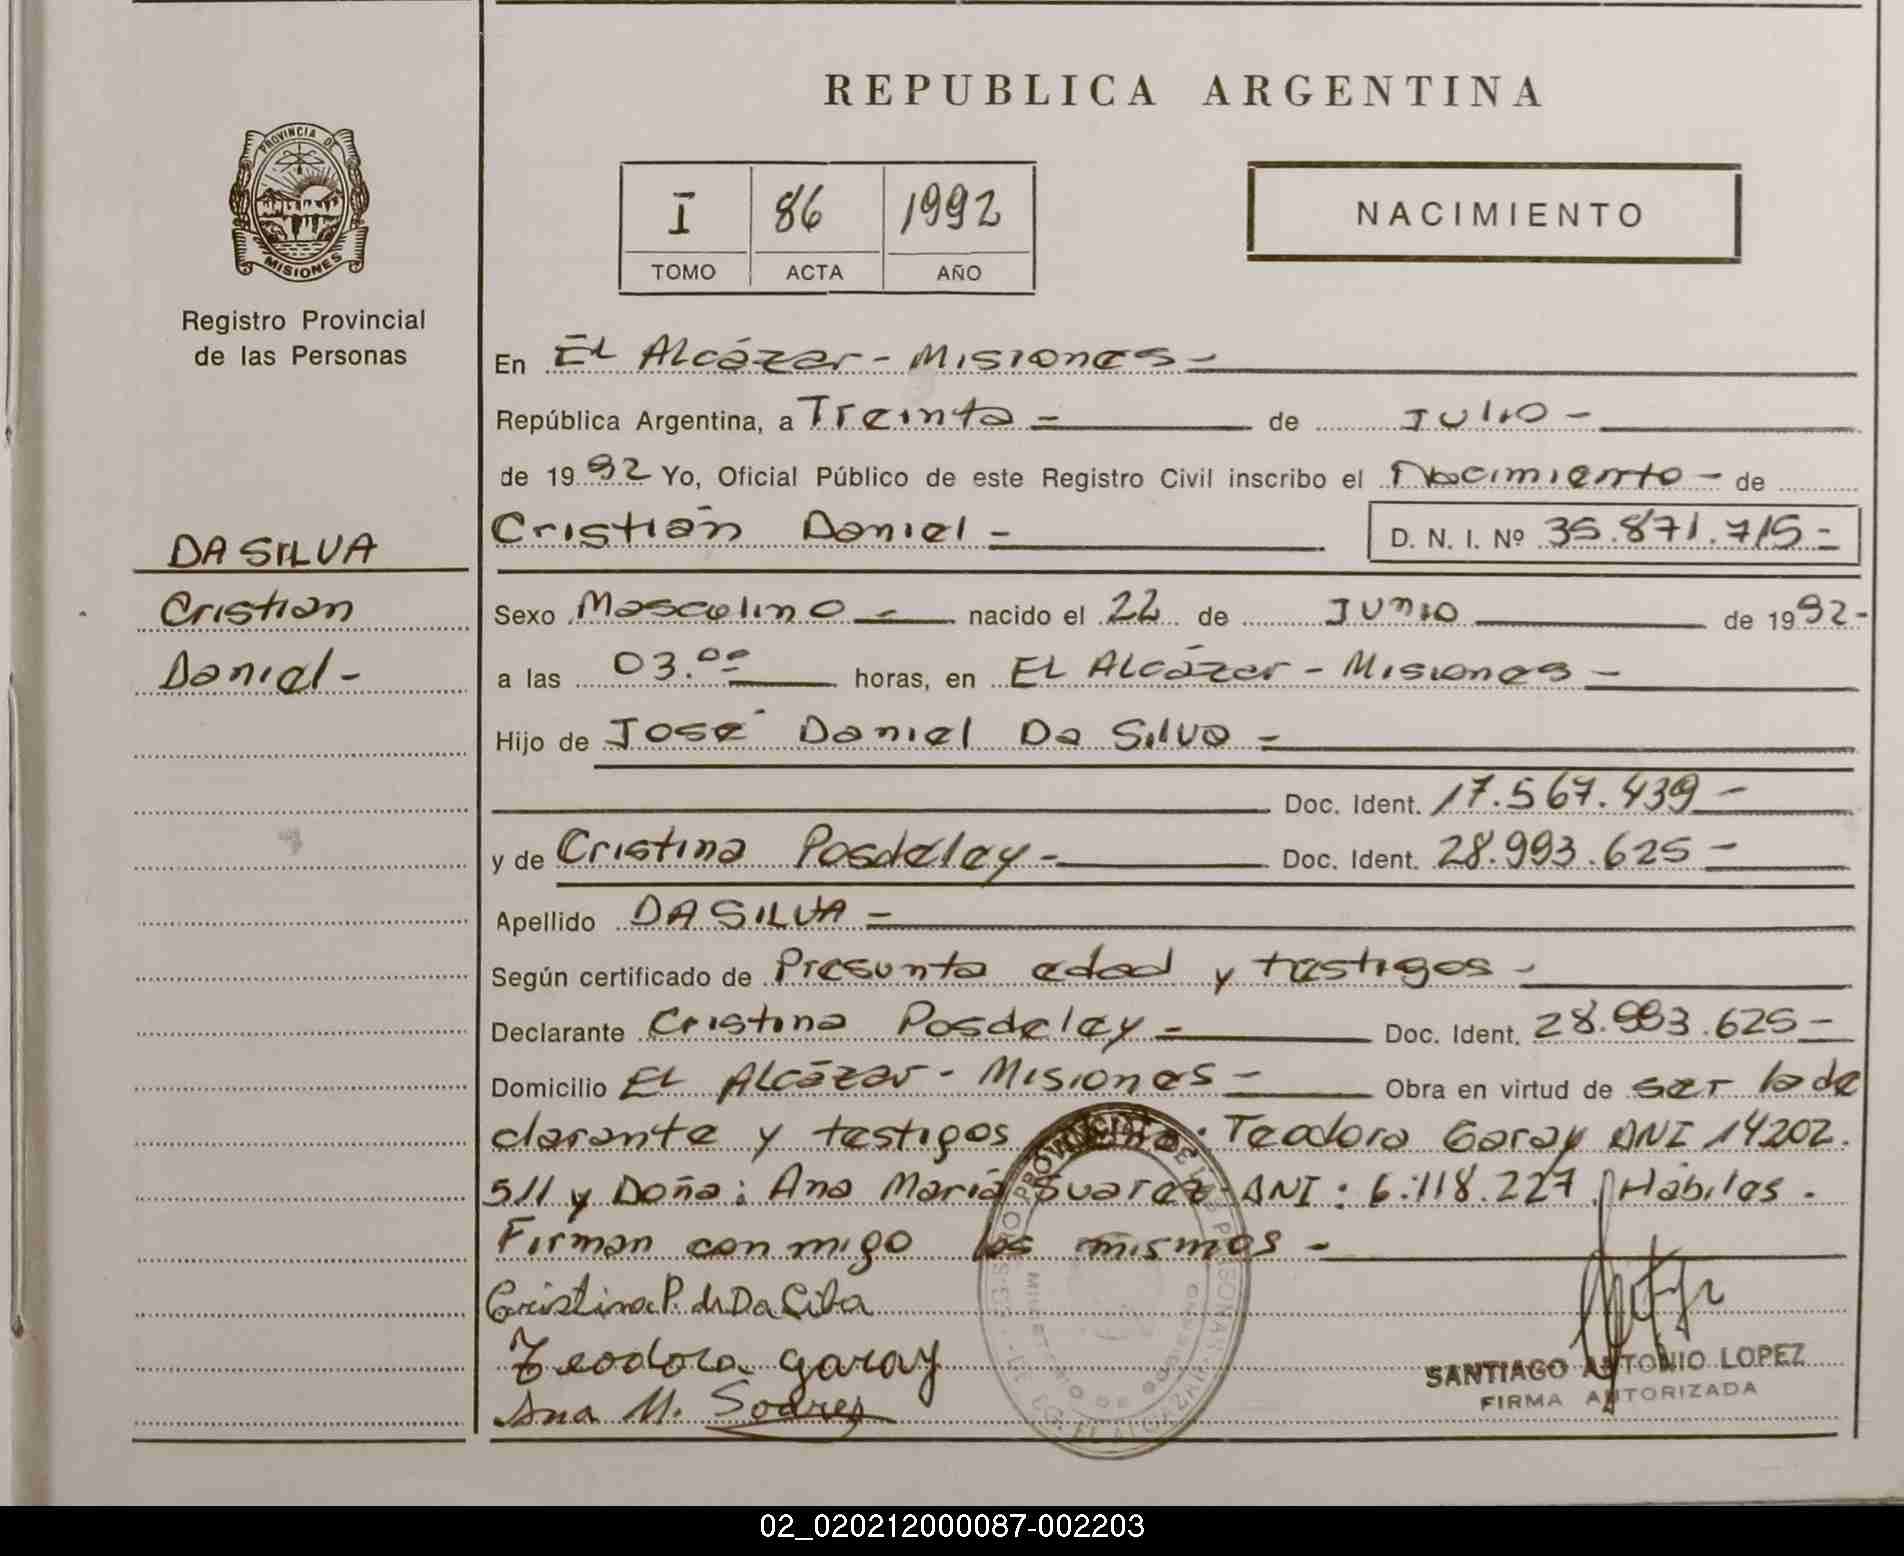 REPUBLICA ARGENTINA
PROVINCIA DE
MISIONES
Registro Provincial
de las Personas
I 86 1992
TOMO ACTA AÑO
NACIMIENTO
En El Alcázar - Misiones -
República Argentina, a Treinta - de Julio -
de 1992 Yo, Oficial Público de este Registro Civil inscribo el Nacimiento - de
Cristián Daniel - D. N. I. Nº 35.871.715 -
DA SILVA
Cristian
Daniel -
Sexo Masculino - nacido el 22 de Junio de 1992 -
a las 03.00 horas, en El Alcázar - Misiones -
Hijo de José Daniel Da Silva -
Doc. Ident. 17.567.439 -
y de Cristina Posdeley - Doc. Ident. 28.993.625 -
Apellido DA SILVA -
Según certificado de Presunta edad y testigos -
Declarante Cristina Posdeley - Doc. Ident. 28.993.625 -
Domicilio El Alcázar - Misiones - Obra en virtud de ser la de
clarante y testigos Teodora Garay DNI 14202.
511 y Doña: Ana María Suarez DNI: 6.118.227. Hábiles.
Firman con migo los mismos -
Cristina P. de Da Silva
Teodora garay
Ana M. Soares
SANTIAGO ANTONIO LOPEZ
FIRMA AUTORIZADA
02_020212000087-002203